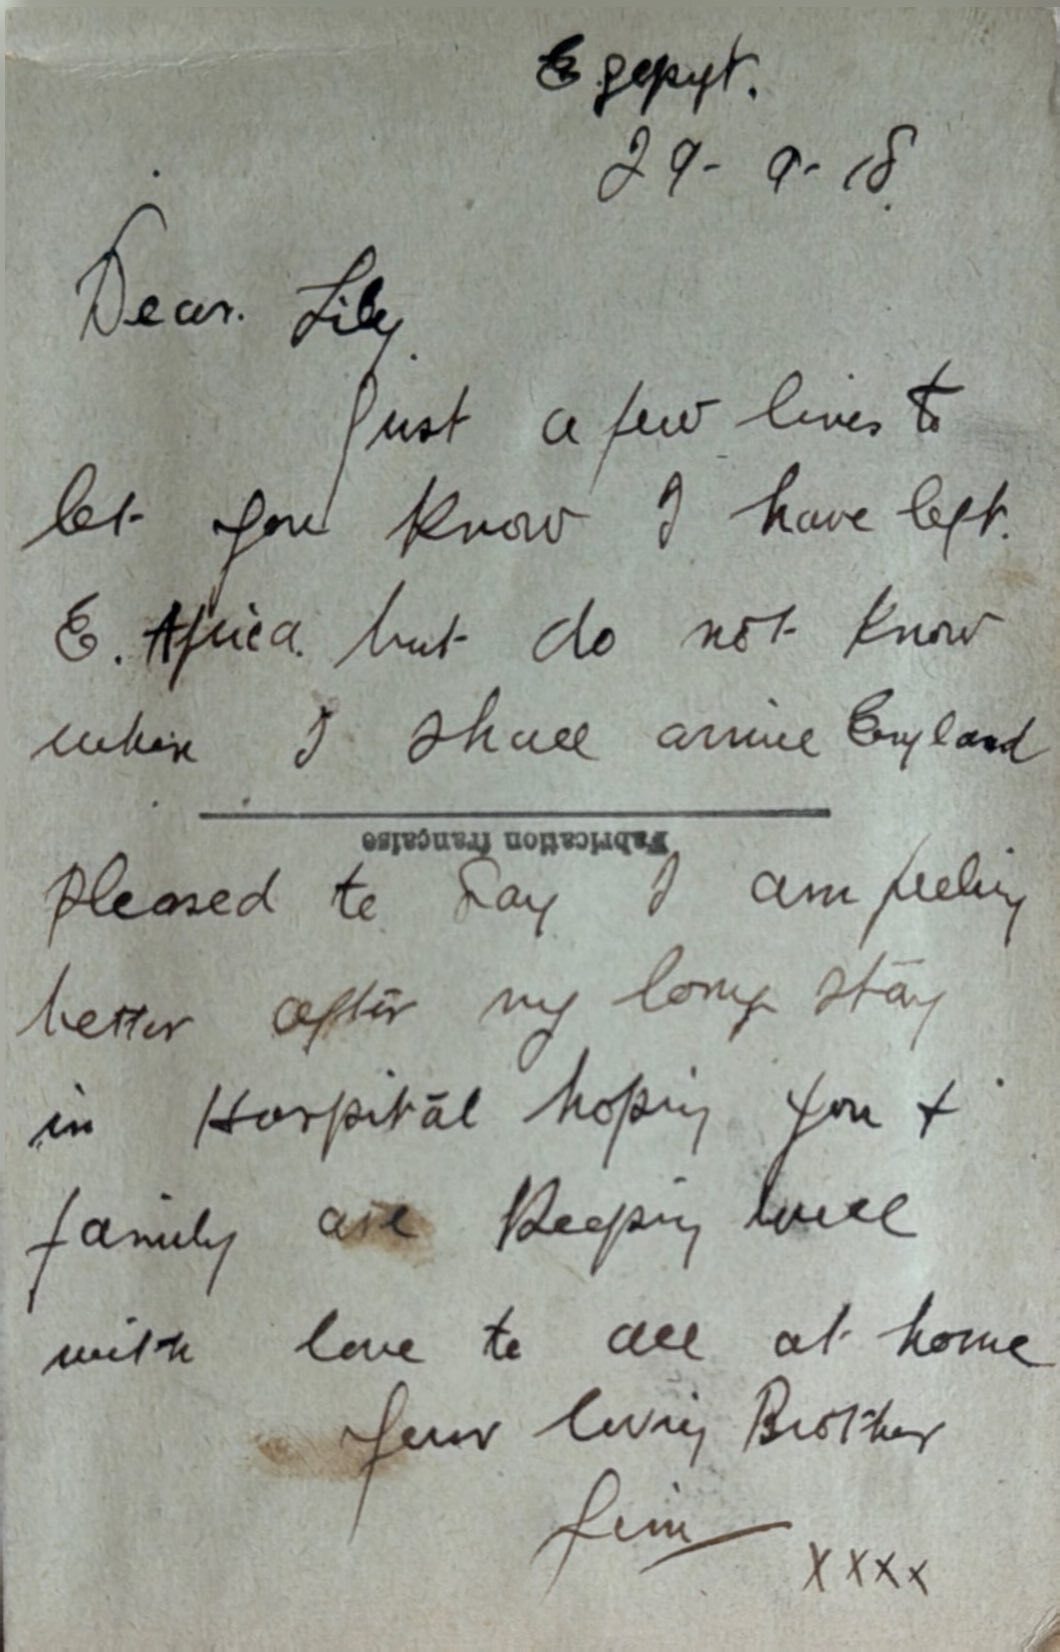 Egepyt.
29- 9- 18.
Dear. Lily.
Just a few lines to
let you know I have left.
E. Africa. but do not know
when I shall arrive England
Fabrication française
pleased to say I am feeling
better after my long stay
in Hospital hoping you +
family are keeping well
with love to all at home
your loving Brother
Jim
xxxx